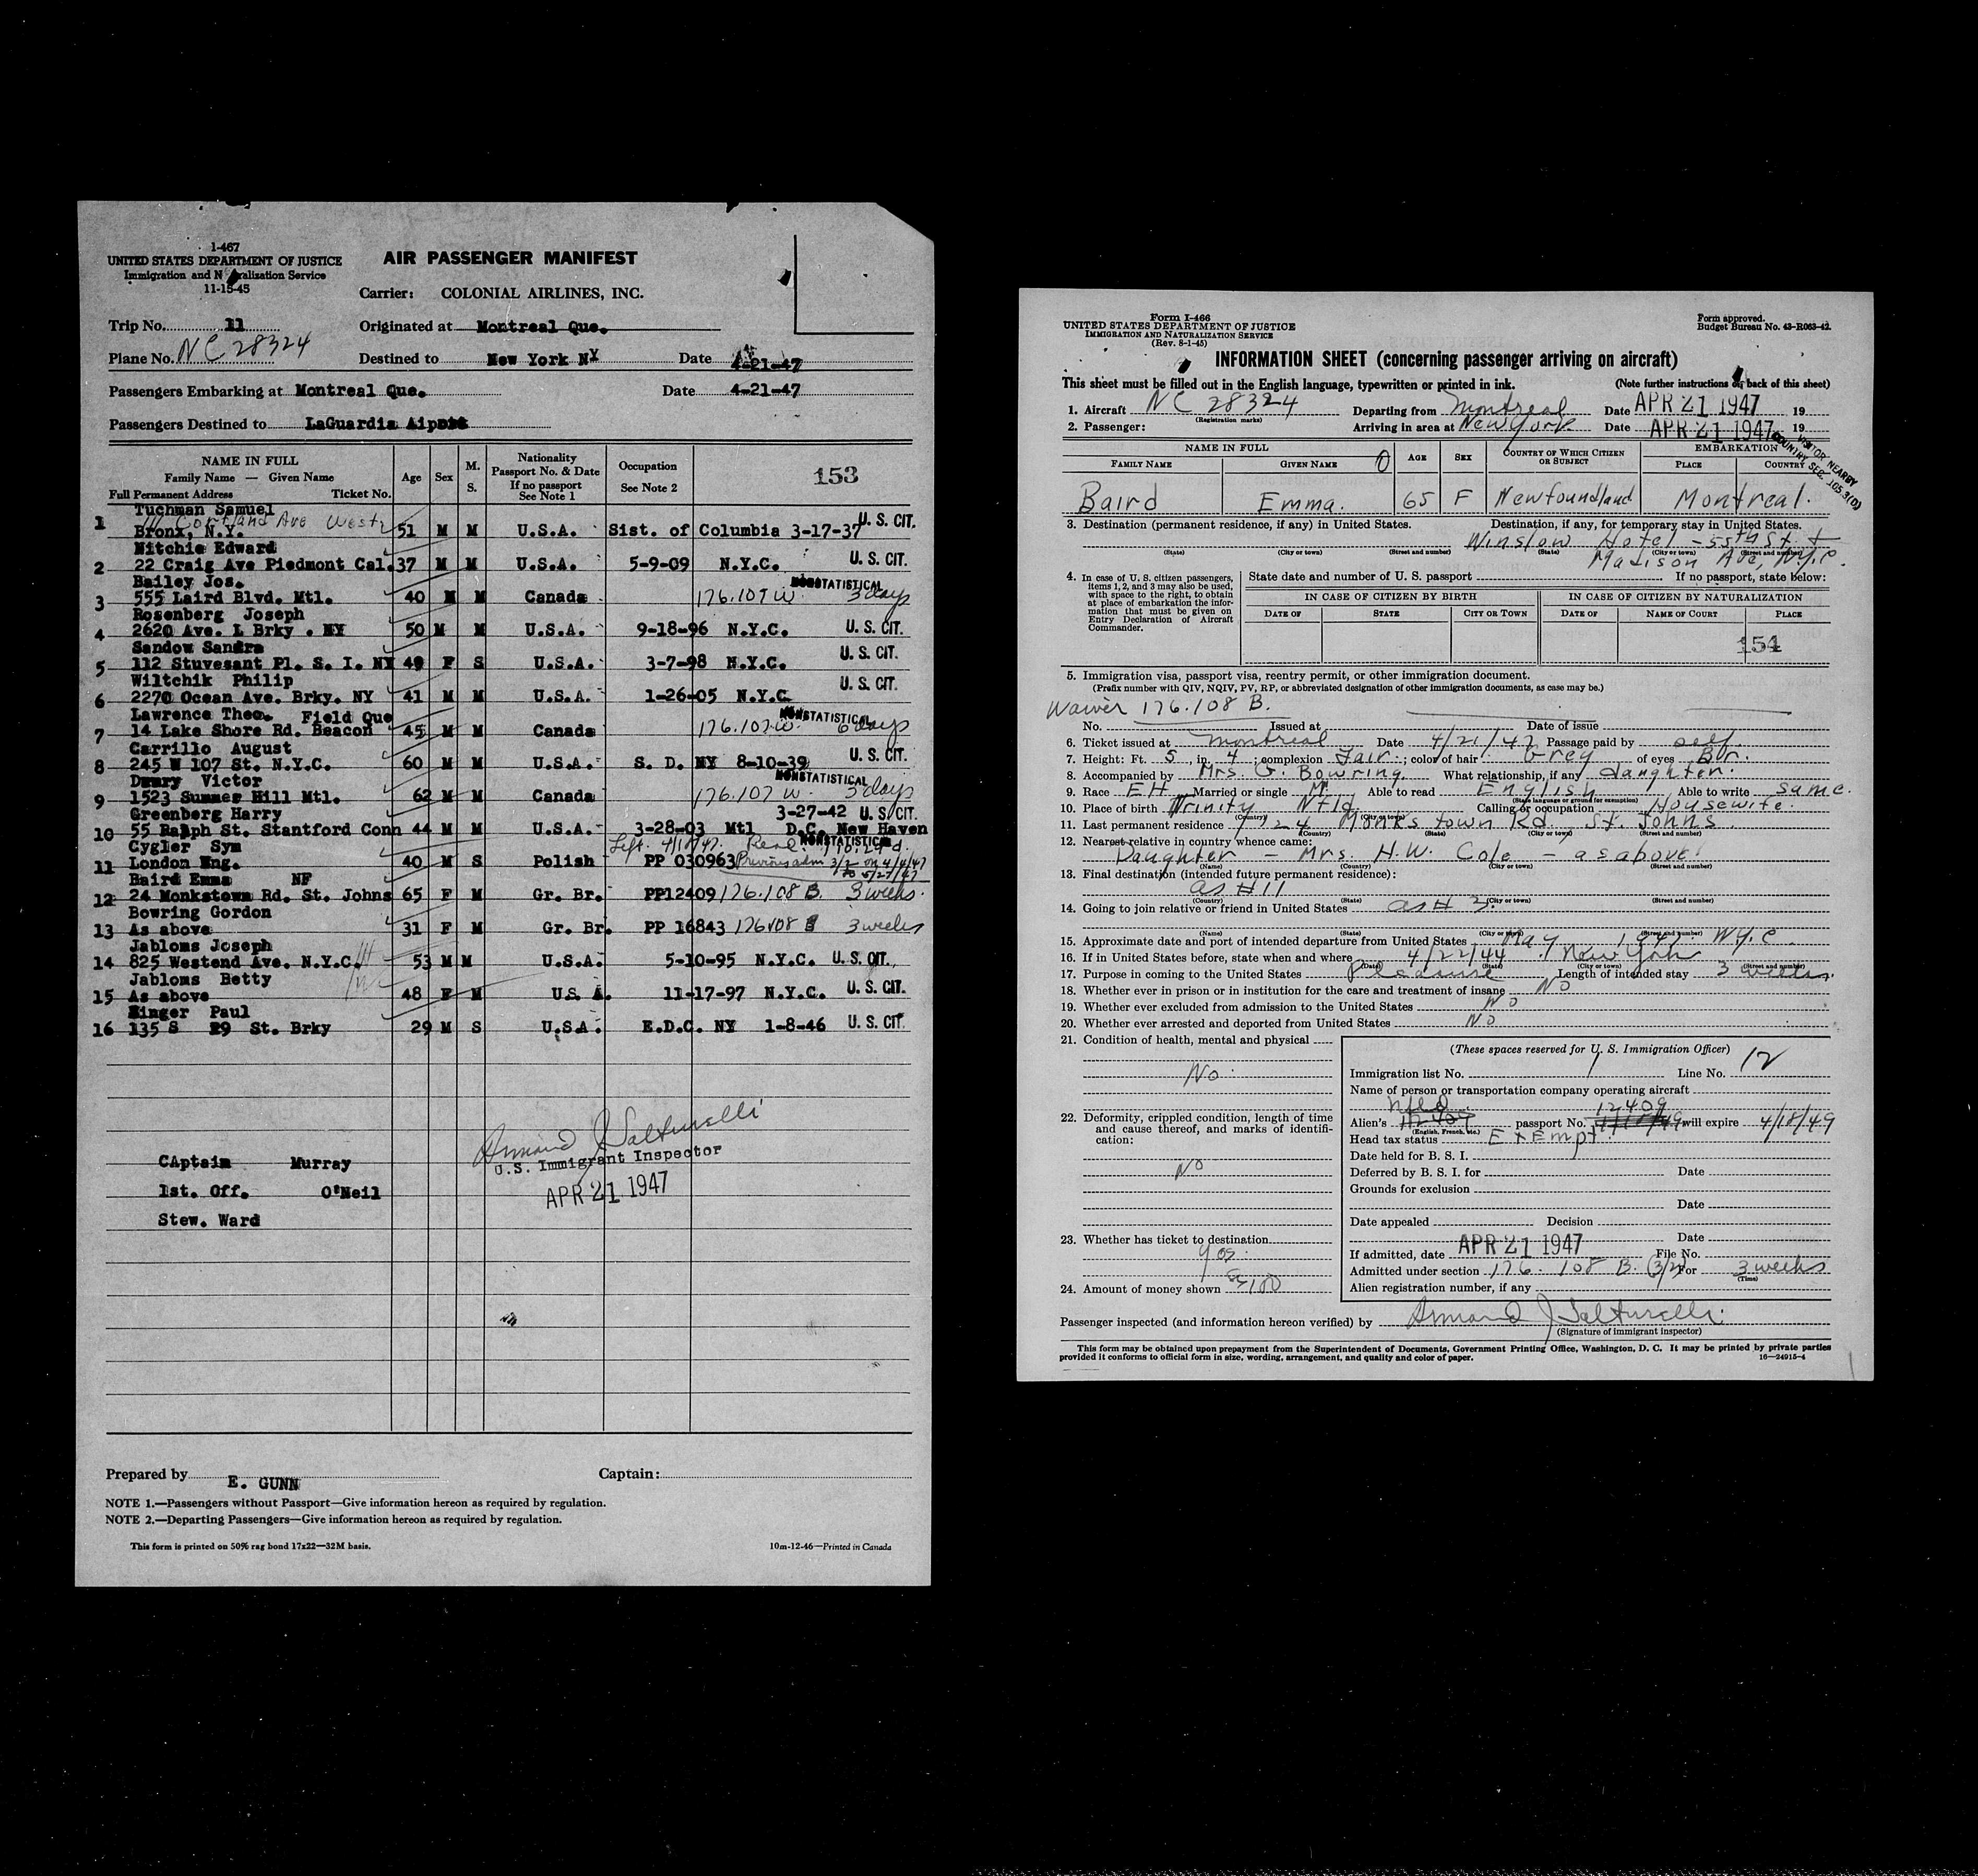 I-467
UNITED STATES DEPARTMENT OF JUSTICE
Immigration and N ralization Service
11-15-45
AIR PASSENGER MANIFEST
Carrier: COLONIAL AIRLINES, INC.
Trip No. 11 Originated at Montreal Que.
Plane No. NC 28324 Destined to New York NY Date 4-21-47
Passengers Embarking at Montreal Que. Date 4-21-47
Passengers Destined to LaGuardia
NAME IN FULL
Family Name — Given Name
Full Permanent Address Ticket No.
Age Sex M. S.
Nationality Passport No. & Date If no passport See Note 1
Occupation See Note 2
153
Tuchman Samuel
1 Cortland Ave West
Bronx, N.Y. 51 M M U.S.A. Sist. of Columbia 3-17-37 U. S. CIT.
Nitchie Edward
2 22 Craig Ave Piedmont Cal. 37 M M U.S.A. 5-9-09 N.Y.C. U. S. CIT.
Bailey Jos. NONSTATISTICAL
3 555 Laird Blvd. Mtl. 40 M M Canada 176.107 W. 3 days
Rosenberg Joseph
4 2620 Ave. L Brky . NY 50 M M U.S.A. 9-18-96 N.Y.C. U. S. CIT.
Sandow Sandra
5 112 Stuvesant Pl. S. I. NY 49 F S U.S.A. 3-7-98 N.Y.C. U. S. CIT.
Wiltchik Philip
6 2270 Ocean Ave. Brky. NY 41 M M U.S.A. 1-26-05 N.Y.C. U. S. CIT.
Lawrence Theo. Field Que NONSTATISTICAL
7 14 Lake Shore Rd. Beacon 45 M M Canada 176.107 W. 6 days
Carrillo August
8 245 W 107 St. N.Y.C. 60 M M U.S.A. S. D. NY 8-10-39 U. S. CIT.
Victor NONSTATISTICAL
9 1523 Summer Hill Mtl. 62 M M Canada 176.107 W. 3 days
Greenberg Harry 3-27-42 U. S. CIT.
10 55 Ralph St. Stantford Conn 44 M M U.S.A. 3-28-03 Mtl D.C. New Haven
Cygler Sym Left 4/18/47. NONSTATISTICAL
11 London Eng. 40 M S Polish PP 030963 Previous adm 3/2 on 4/4/47 to 5/27/47
Baird Emma NF
12 24 Monkstown Rd. St. Johns 65 F M Gr. Br. PP12409 176.108 B. 3 weeks.
Bowring Gordon
13 As above 31 F M Gr. Br. PP 16843 176.108 B 3 weeks
Jabloms Joseph
14 825 Westend Ave. N.Y.C. 53 M M U.S.A. 5-10-95 N.Y.C. U. S. CIT.
Jabloms Betty
15 As above 48 F M U.S.A. 11-17-97 N.Y.C. U. S. CIT.
Paul
16 135 S 29 St. Brky 29 M S U.S.A. E.D.C. NY 1-8-46 U. S. CIT.
Armand J Salturelli
U.S. Immigrant Inspector
APR 21 1947
CAptain Murray
1st. Off. O'Neil
Stew. Ward
Prepared by E. GUNN Captain:
NOTE 1.—Passengers without Passport—Give information hereon as required by regulation.
NOTE 2.—Departing Passengers—Give information hereon as required by regulation.
This form is printed on 50% rag bond 17x22—32M basis. 10m-12-46—Printed in Canada
Form I-466
UNITED STATES DEPARTMENT OF JUSTICE
IMMIGRATION AND NATURALIZATION SERVICE
(Rev. 8-1-45)
Form approved.
Budget Bureau No. 43-R063-42.
INFORMATION SHEET (concerning passenger arriving on aircraft)
This sheet must be filled out in the English language, typewritten or printed in ink. (Note further instructions on back of this sheet)
1. Aircraft NC 28324 Departing from Montreal Date APR 21 1947 19
(Registration marks)
2. Passenger: Arriving in area at New York Date APR 21 1947 19
VISITOR NEARBY
COUNTRY SEC. 105.3(0)
NAME IN FULL AGE SEX COUNTRY OF WHICH CITIZEN OR SUBJECT EMBARKATION
FAMILY NAME GIVEN NAME PLACE COUNTRY
Baird Emma. 65 F Newfoundland Montreal.
3. Destination (permanent residence, if any) in United States. Destination, if any, for temporary stay in United States.
Winslow Hotel - 55th St. +
(State) (City or town) (Street and number) (State) (City or town) (Street and number)
Madison Ave, N.Y.C.
4. In case of U. S. citizen passengers, items 1, 2, and 3 may also be used, with space to the right, to obtain at place of embarkation the information that must be given on Entry Declaration of Aircraft Commander.
State date and number of U. S. passport If no passport, state below:
IN CASE OF CITIZEN BY BIRTH IN CASE OF CITIZEN BY NATURALIZATION
DATE OF STATE CITY OR TOWN DATE OF NAME OF COURT PLACE
154
5. Immigration visa, passport visa, reentry permit, or other immigration document.
(Prefix number with QIV, NQIV, PV, RP, or abbreviated designation of other immigration documents, as case may be.)
Waiver 176.108 B.
No. Issued at Date of issue
6. Ticket issued at Montreal Date 4/21/47 Passage paid by self
7. Height: Ft. 5, in. 4; complexion Fair; color of hair Grey of eyes Br.
8. Accompanied by Mrs. G. Bowring. What relationship, if any daughter.
9. Race EH Married or single M. Able to read English Able to write same.
(State language or ground for exemption)
10. Place of birth Trinity Nfld. Calling or occupation Housewife.
(Country) (City or town)
11. Last permanent residence 24 Monkstown Rd. St. Johns.
(Country) (State) (City or town)
12. Nearest relative in country whence came:
Daughter - Mrs. H.W. Cole - as above.
(Name) (Country) (City or town) (Street and number)
13. Final destination (intended future permanent residence):
as # 11
(Country) (City or town) (Street and number)
14. Going to join relative or friend in United States as # 3.
(Name) (State) (City or town) (Street and number)
15. Approximate date and port of intended departure from United States May 1947. NY.C.
16. If in United States before, state when and where 4/22/44 New York
(Date) (State) (City or town) (Street and number)
17. Purpose in coming to the United States Pleasure Length of intended stay 3 weeks.
18. Whether ever in prison or in institution for the care and treatment of insane No
19. Whether ever excluded from admission to the United States No
20. Whether ever arrested and deported from United States No
21. Condition of health, mental and physical
No
22. Deformity, crippled condition, length of time and cause thereof, and marks of identification:
No
23. Whether has ticket to destination
yes.
24. Amount of money shown $100
(These spaces reserved for U. S. Immigration Officer)
Immigration list No. 1 Line No. 12
Name of person or transportation company operating aircraft
Nfld 12409
Alien's passport No. will expire 4/18/49
(English, French, etc.)
Head tax status Exempt.
Date held for B. S. I.
Deferred by B. S. I. for Date
Grounds for exclusion
Date
Date appealed Decision
Date
If admitted, date APR 21 1947 File No.
Admitted under section 176.108 B. (3/2) For 3 weeks
(Time)
Alien registration number, if any
Passenger inspected (and information hereon verified) by Armand J Salturelli
(Signature of immigrant inspector)
This form may be obtained upon prepayment from the Superintendent of Documents, Government Printing Office, Washington, D. C. It may be printed by private parties
provided it conforms to official form in size, wording, arrangement, and quality and color of paper. 16—24915-4